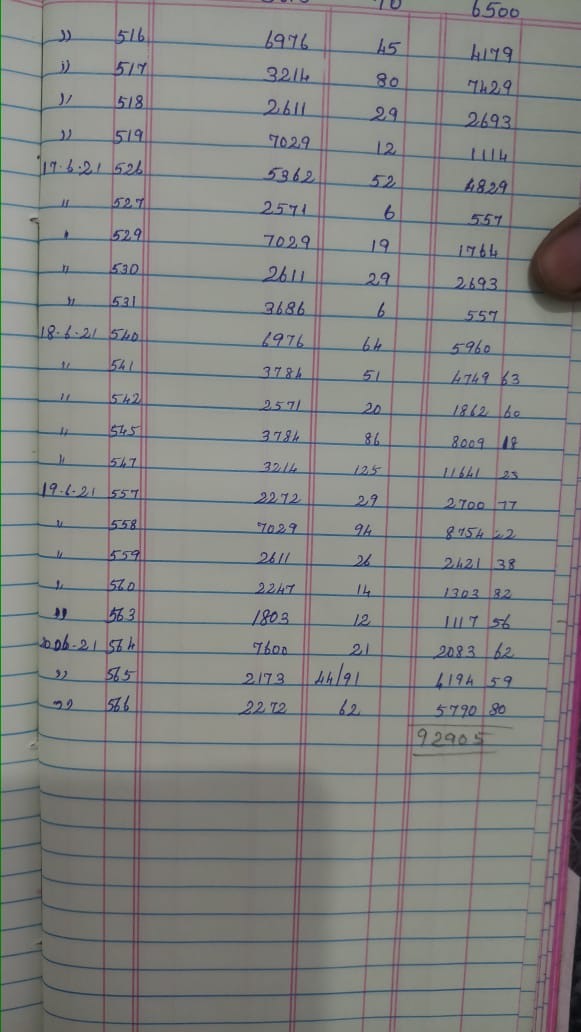 10 6500
" 516 6976 45 4179
" 517 3214 80 7429
" 518 2611 29 2693
" 519 7029 12 1114
17.6.21 526 5362 52 4829
" 527 2571 6 557
" 529 7029 19 1764
" 530 2611 29 2693
" 531 3686 6 557
18.6.21 540 6976 64 5960
" 541 3784 51 4749 63
" 542 2571 20 1862 60
" 545 3784 86 8009 18
" 547 3214 125 11641 23
19.6.21 557 2272 29 2700 77
" 558 7029 94 8754 22
" 559 2611 26 2421 38
" 560 2247 14 1303 82
" 563 1803 12 1117 56
20.06.21 564 7600 21 2083 62
" 565 2173 44/91 4194 59
" 566 2272 62 5790 80
92905